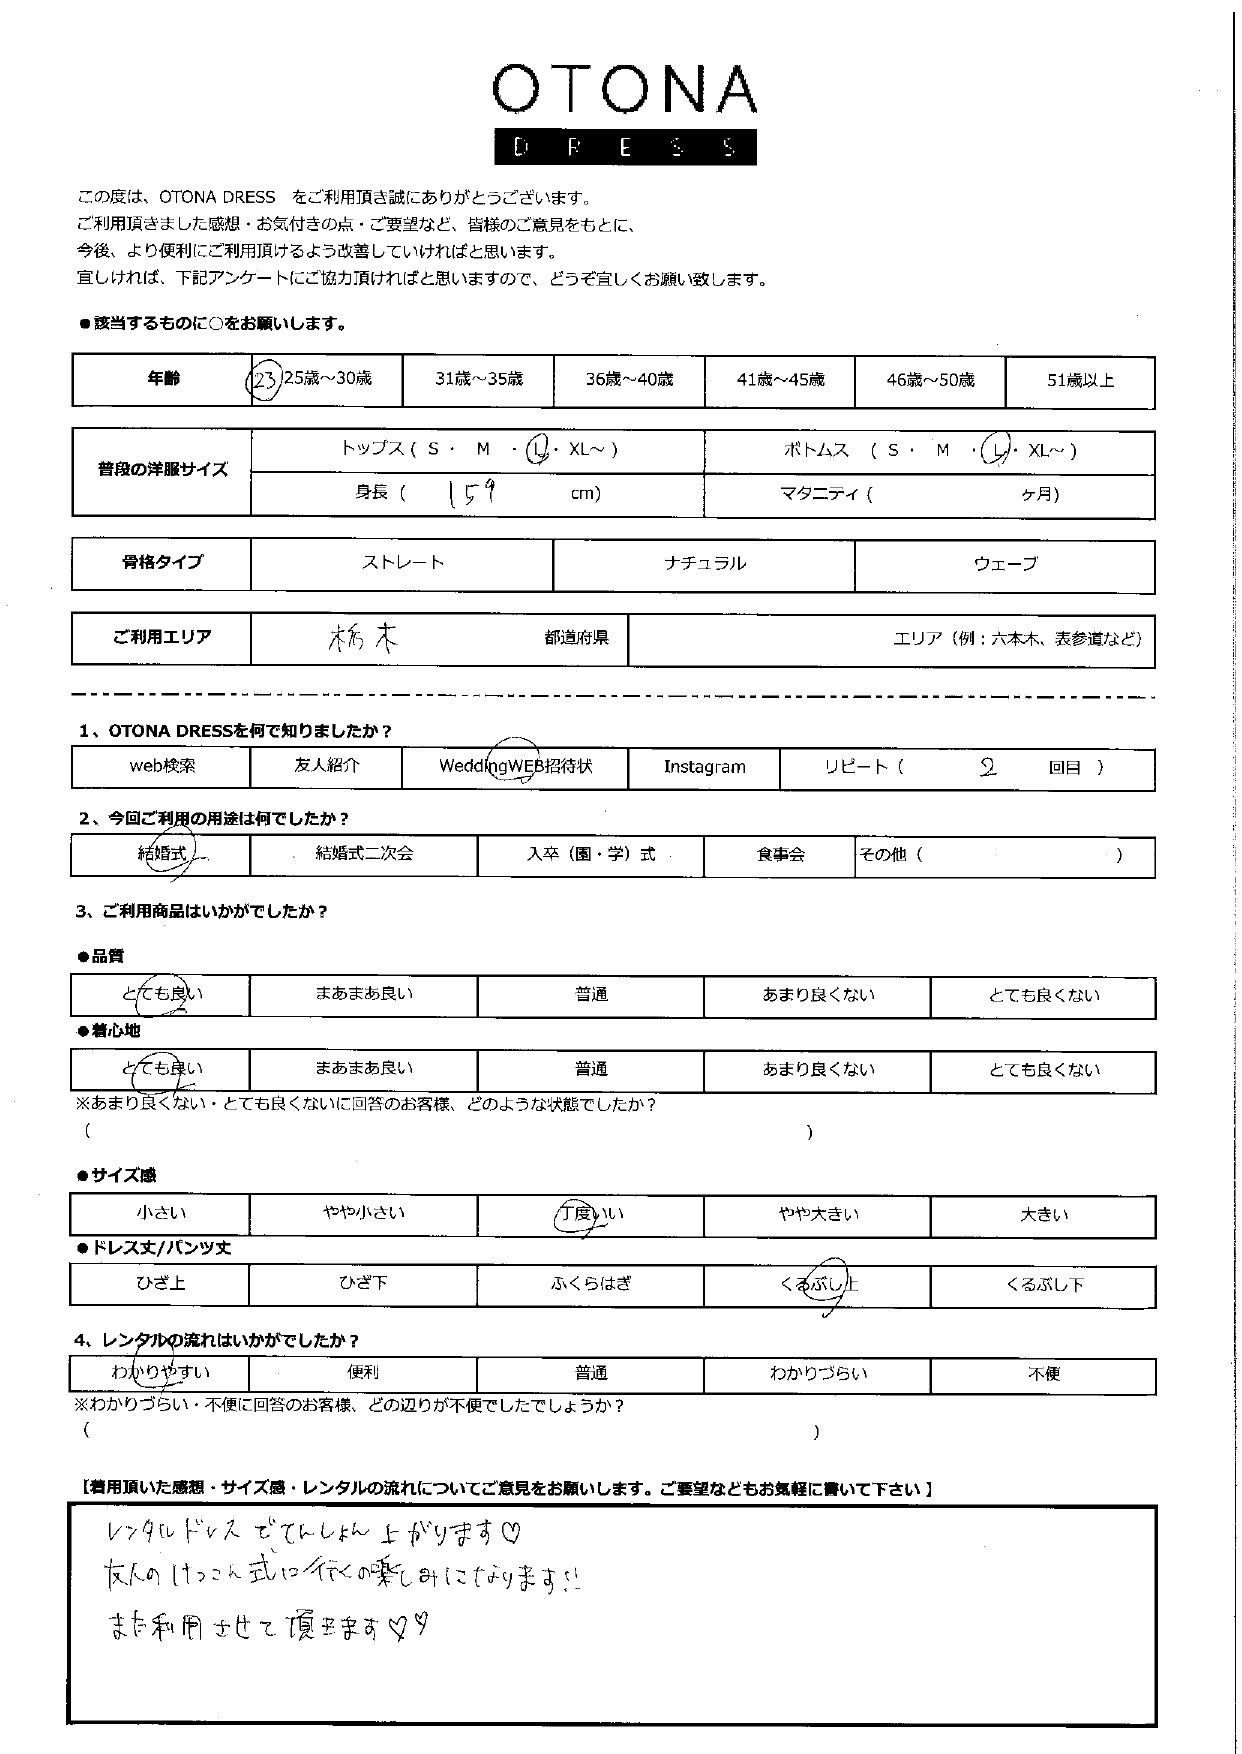 OTONA
DRESS
この度は、OTONA DRESS　をご利用頂き誠にありがとうございます。
ご利用頂きました感想・お気付きの点・ご要望など、皆様のご意見をもとに、
今後、より便利にご利用頂けるよう改善していければと思います。
宜しければ、下記アンケートにご協力頂ければと思いますので、どうぞ宜しくお願い致します。
●該当するものに○をお願いします。
年齢 23 25歳～30歳 31歳～35歳 36歳～40歳 41歳～45歳 46歳～50歳 51歳以上
普段の洋服サイズ トップス ( S ・ M ・ L ・ XL～ ) ボトムス ( S ・ M ・ L ・ XL～ )
身長 ( 159 cm) マタニティ ( ヶ月)
骨格タイプ ストレート ナチュラル ウェーブ
ご利用エリア 栃木 都道府県 エリア（例：六本木、表参道など）
1、OTONA DRESSを何で知りましたか？
web検索 友人紹介 WeddingWEB招待状 Instagram リピート ( 2 回目 )
2、今回ご利用の用途は何でしたか？
結婚式 結婚式二次会 入卒（園・学）式 食事会 その他 ( )
3、ご利用商品はいかがでしたか？
●品質
とても良い まあまあ良い 普通 あまり良くない とても良くない
●着心地
とても良い まあまあ良い 普通 あまり良くない とても良くない
※あまり良くない・とても良くないに回答のお客様、どのような状態でしたか？
( )
●サイズ感
小さい やや小さい 丁度いい やや大きい 大きい
●ドレス丈/パンツ丈
ひざ上 ひざ下 ふくらはぎ くるぶし上 くるぶし下
4、レンタルの流れはいかがでしたか？
わかりやすい 便利 普通 わかりづらい 不便
※わかりづらい・不便に回答のお客様、どの辺りが不便でしたでしょうか？
( )
【着用頂いた感想・サイズ感・レンタルの流れについてご意見をお願いします。ご要望などもお気軽に書いて下さい】
レンタルドレスでてんしょん上がります♡
友人のけっこん式に行くの楽しみになります!!
また利用させて頂きます♡♡